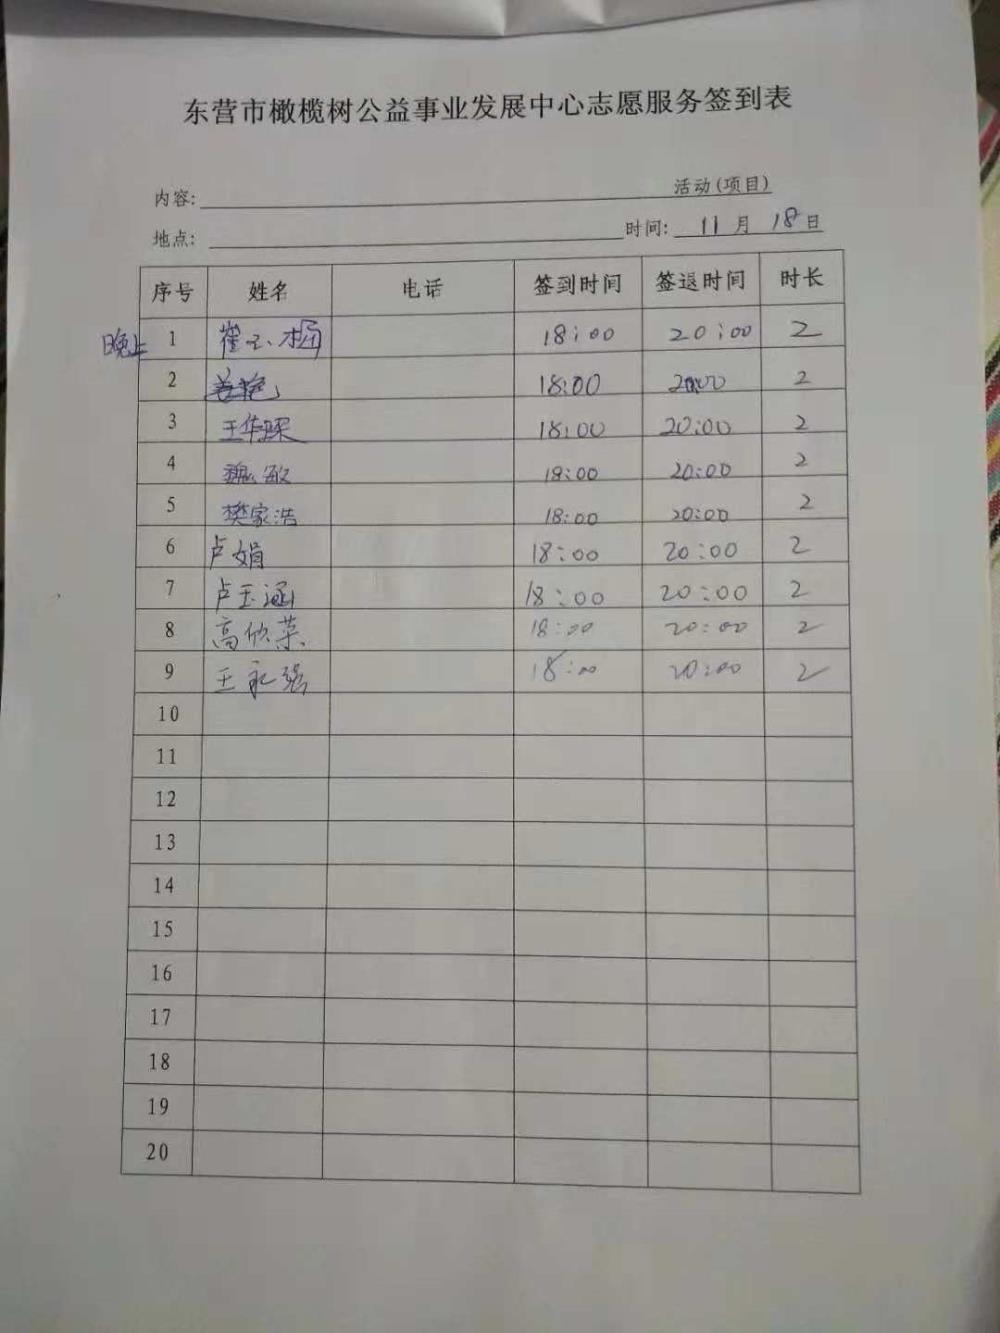 东营市橄榄树公益事业发展中心志愿服务签到表
内容: 活动(项目)
地点: 时间: 11月18日
序号 姓名 电话 签到时间 签退时间 时长
晚上 1 18:00 20:00 2
2 18:00 20:00 2
3 18:00 20:00 2
4 魏敏 18:00 20:00 2
5 樊家浩 18:00 20:00 2
6 卢娟 18:00 20:00 2
7 卢玉涵 18:00 20:00 2
8 高欣荣 18:00 20:00 2
9 王永强 18:00 20:00 2
10
11
12
13
14
15
16
17
18
19
20